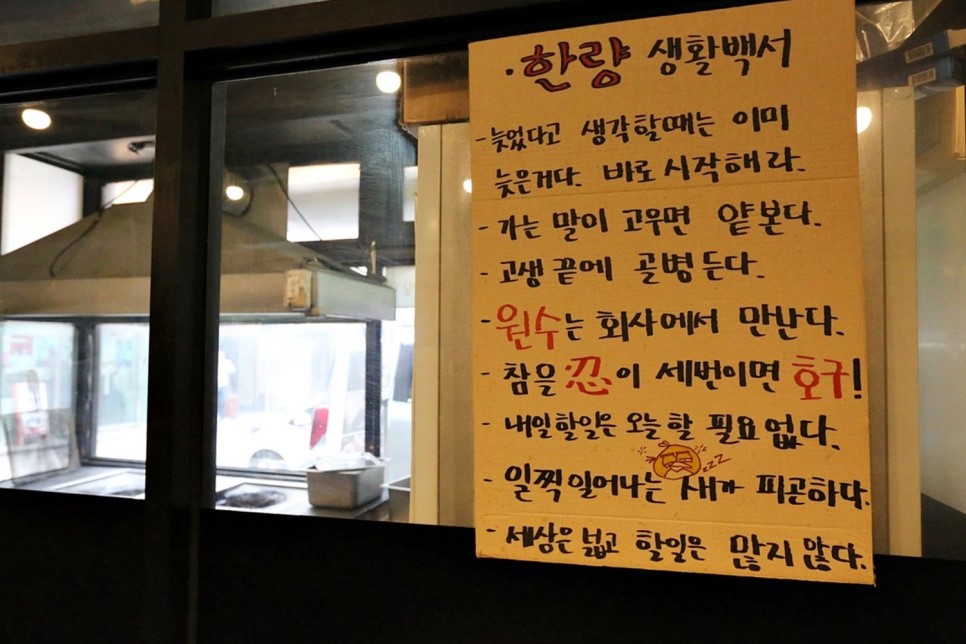 ·한량 생활백서
-늦었다고 생각할때는 이미
늦은거다. 바로 시작해라.
-가는 말이 고우면 얕본다.
-고생 끝에 골병든다.
-원수는 회사에서 만난다.
-참을 忍이 세번이면 호구!
-내일할일은 오늘할 필요없다.
zzz
-일찍일어나는 새가 피곤하다.
-세상은 넓고 할일은 많지 않다.